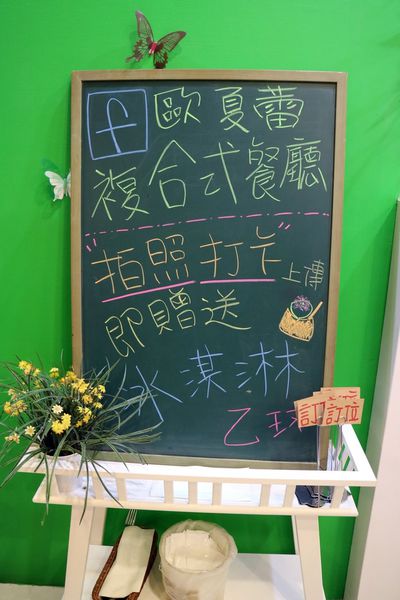 f 歐夏蕾
複合式餐廳
"拍照打卡"上傳
即贈送
冰淇淋
乙球
訂位